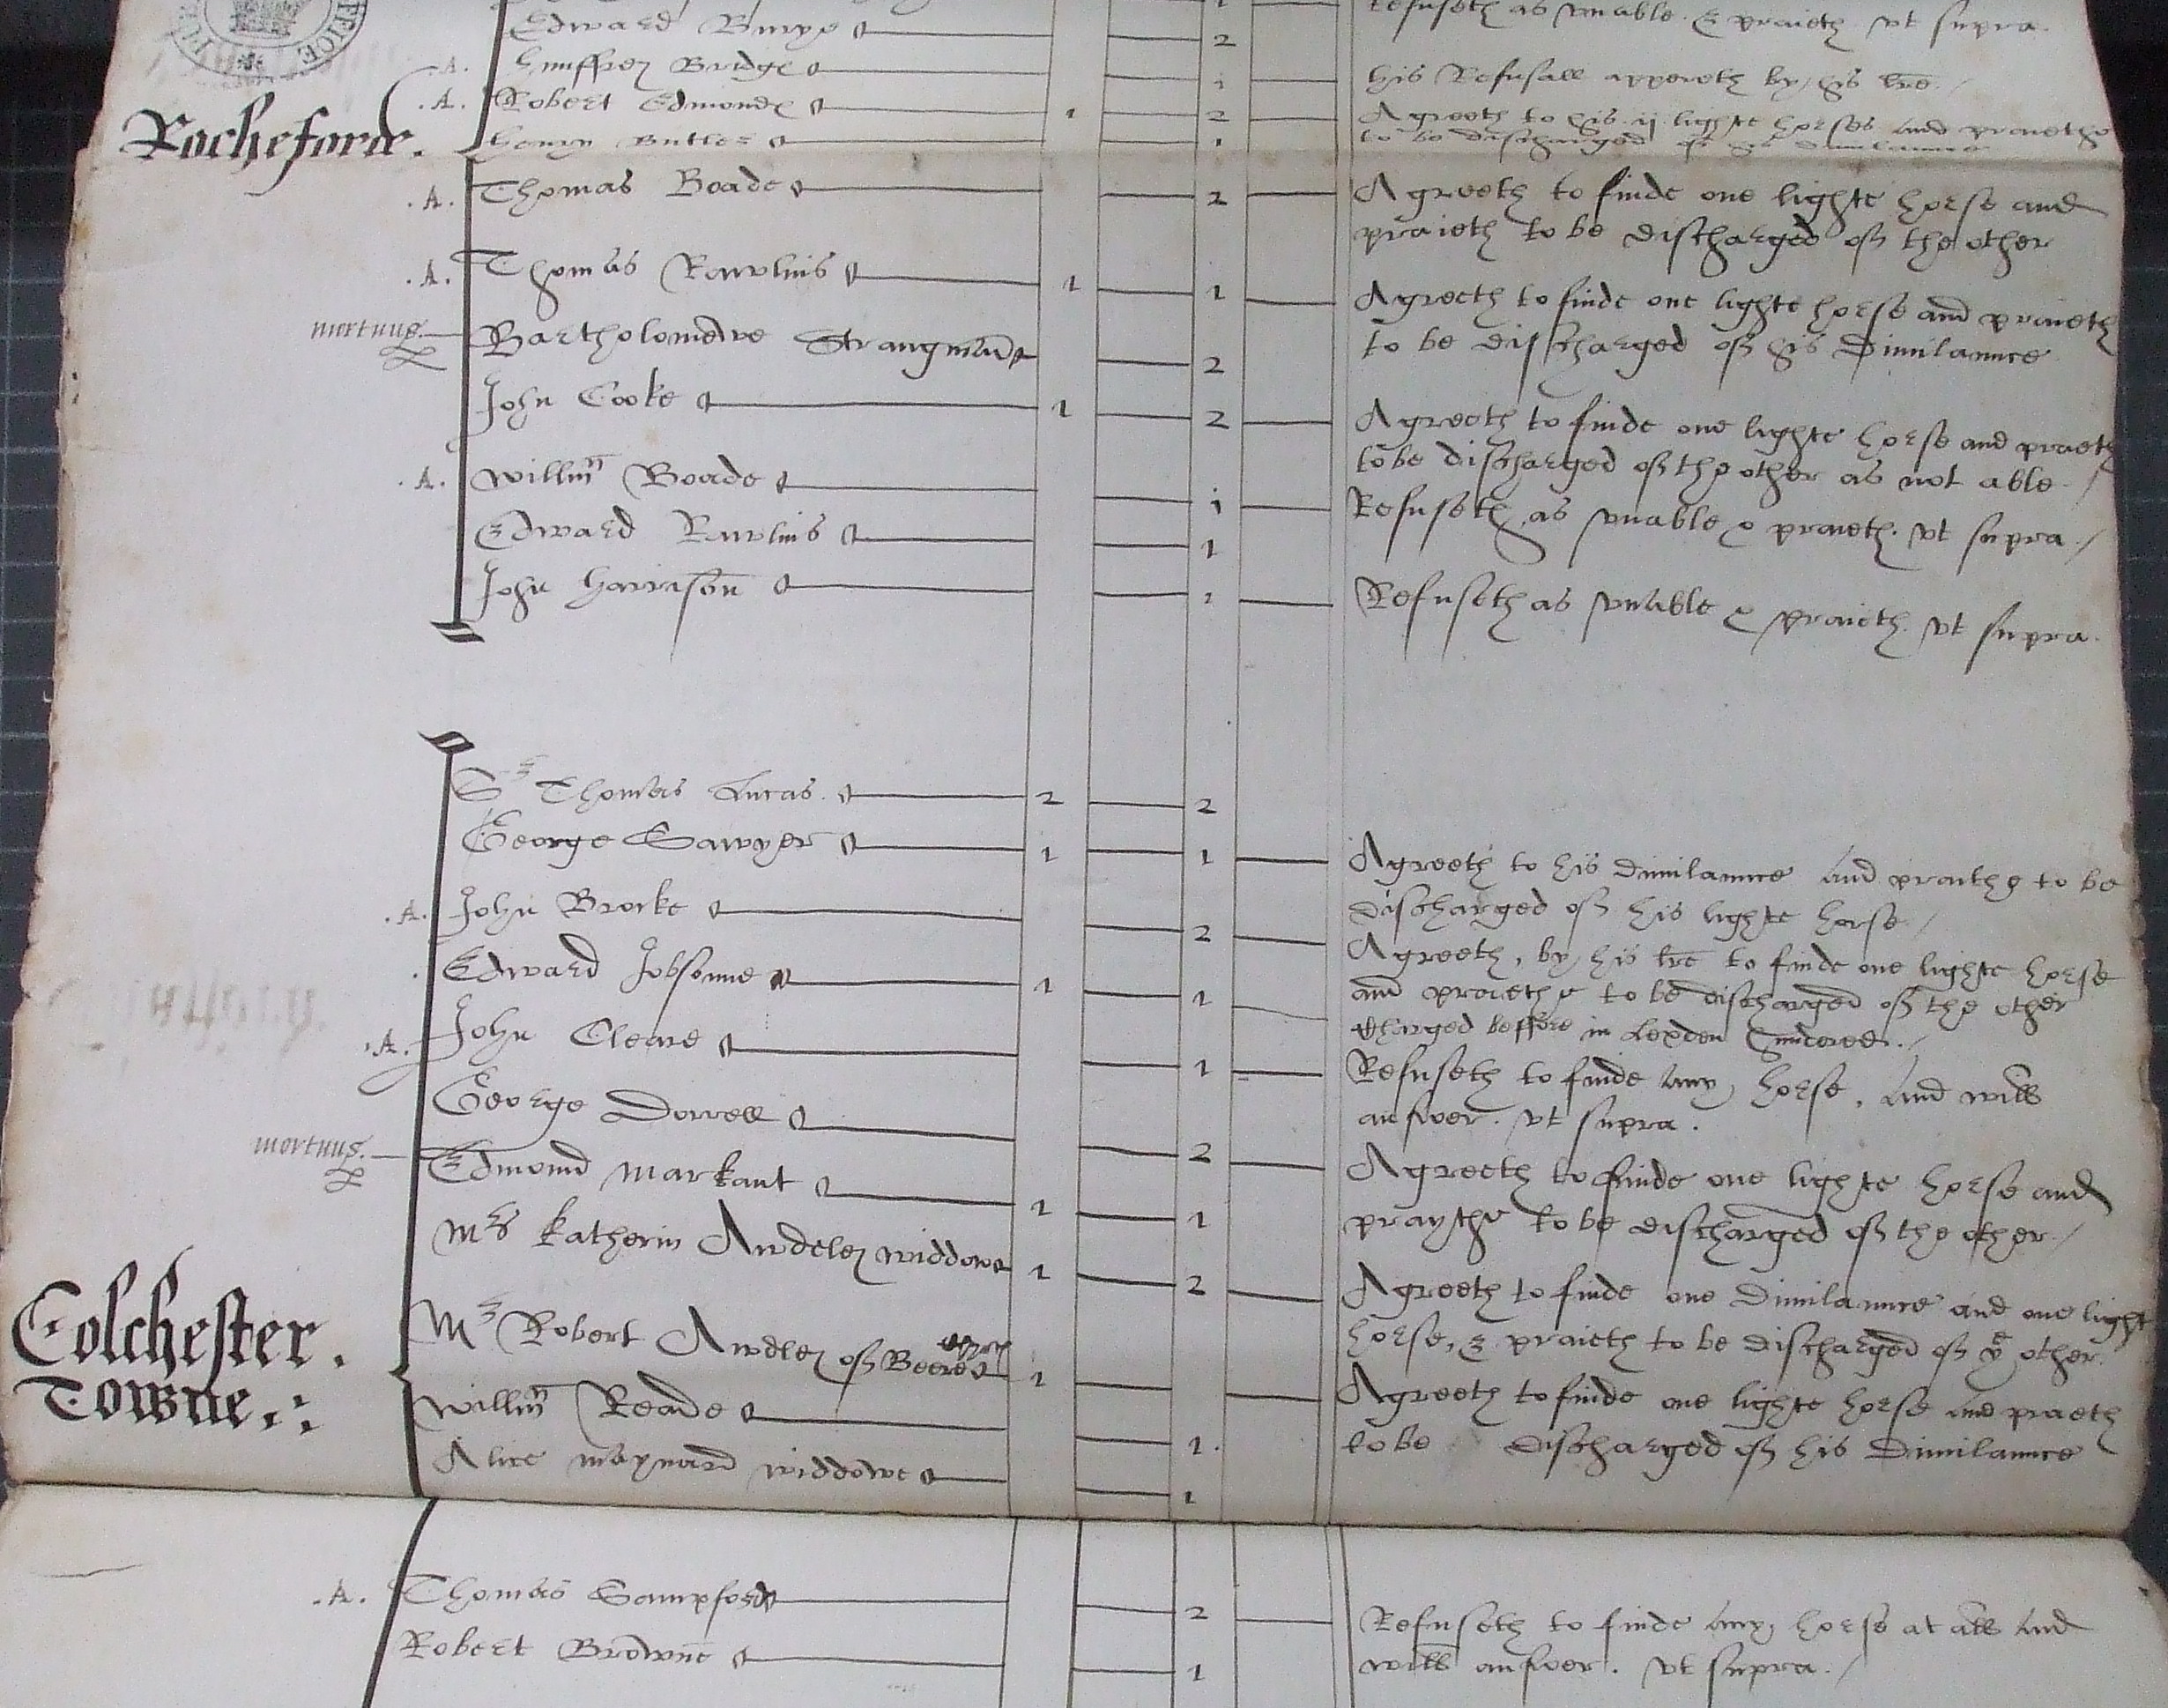 Edward Burye 2 refuseth as vnable & praieth vt supra.
.A. Humffrey Bridge 1 His Refusall appereth by his lre
.A. Robert Edmonde 1 2 Agreeth to his ij lighte horses and praiethe
Rocheforde. Henry Butler 1 to be discharged of his dimilaunce
.A. Thomas Boade 2 Agreeth to finde one lighte horse and
praieth to be discharged off the other
.A. Thomas Rawlins 1 1 Agreeth to finde one lighte horse and praieth
mortuus Bartholomewe Strangman 2 to be discharged off his Dimilaunce
John Cooke 1 2 Agreeth to finde one lighte horse and praieth
to be discharged off the other as not able
.A. Willm Boade 1 Refuseth as vnable & praieth vt supra
Edward Rawlins 1
John Harrison 1 Refuseth as vnable & praieth vt supra.
Sr Thomas Lucas 2 2
George Sawyer 1 1 Agreeth to his dimilaunce and praithe to be
discharged off his lighte horse
.A. John Brocke 2 Agreeth, by his lre to finde one lighte horse
and praiethe to be discharged off the other
. Edward Jobsonne 1 1 Charged beffore in Lexden Hundered.
.A. John Cleave 1 Refuseth to finde any horse, and will
answer vt supra.
George Dowell 2 Agreeth to finde one lighte horse and
praythe to be discharged off the other
mortuus. Edmond Markant 1 1
Mrs Katherin Awdeley widdowe 1 2 Agreeth to finde one Dimilaunce and one light
horse, & praieth to be discharged off ye other.
Colchester Mr Robert Awdley off Beere 1 Agreeth to finde one lighte horse and praieth
Towne. Willm Reade 1. to be discharged off his Dimilaunce
Alice Maynard widdowe 1
.A. Thomas Sampforde 2 Refuseth to finde any horse at all and
will answer. vt supra.
Robert Browne 1